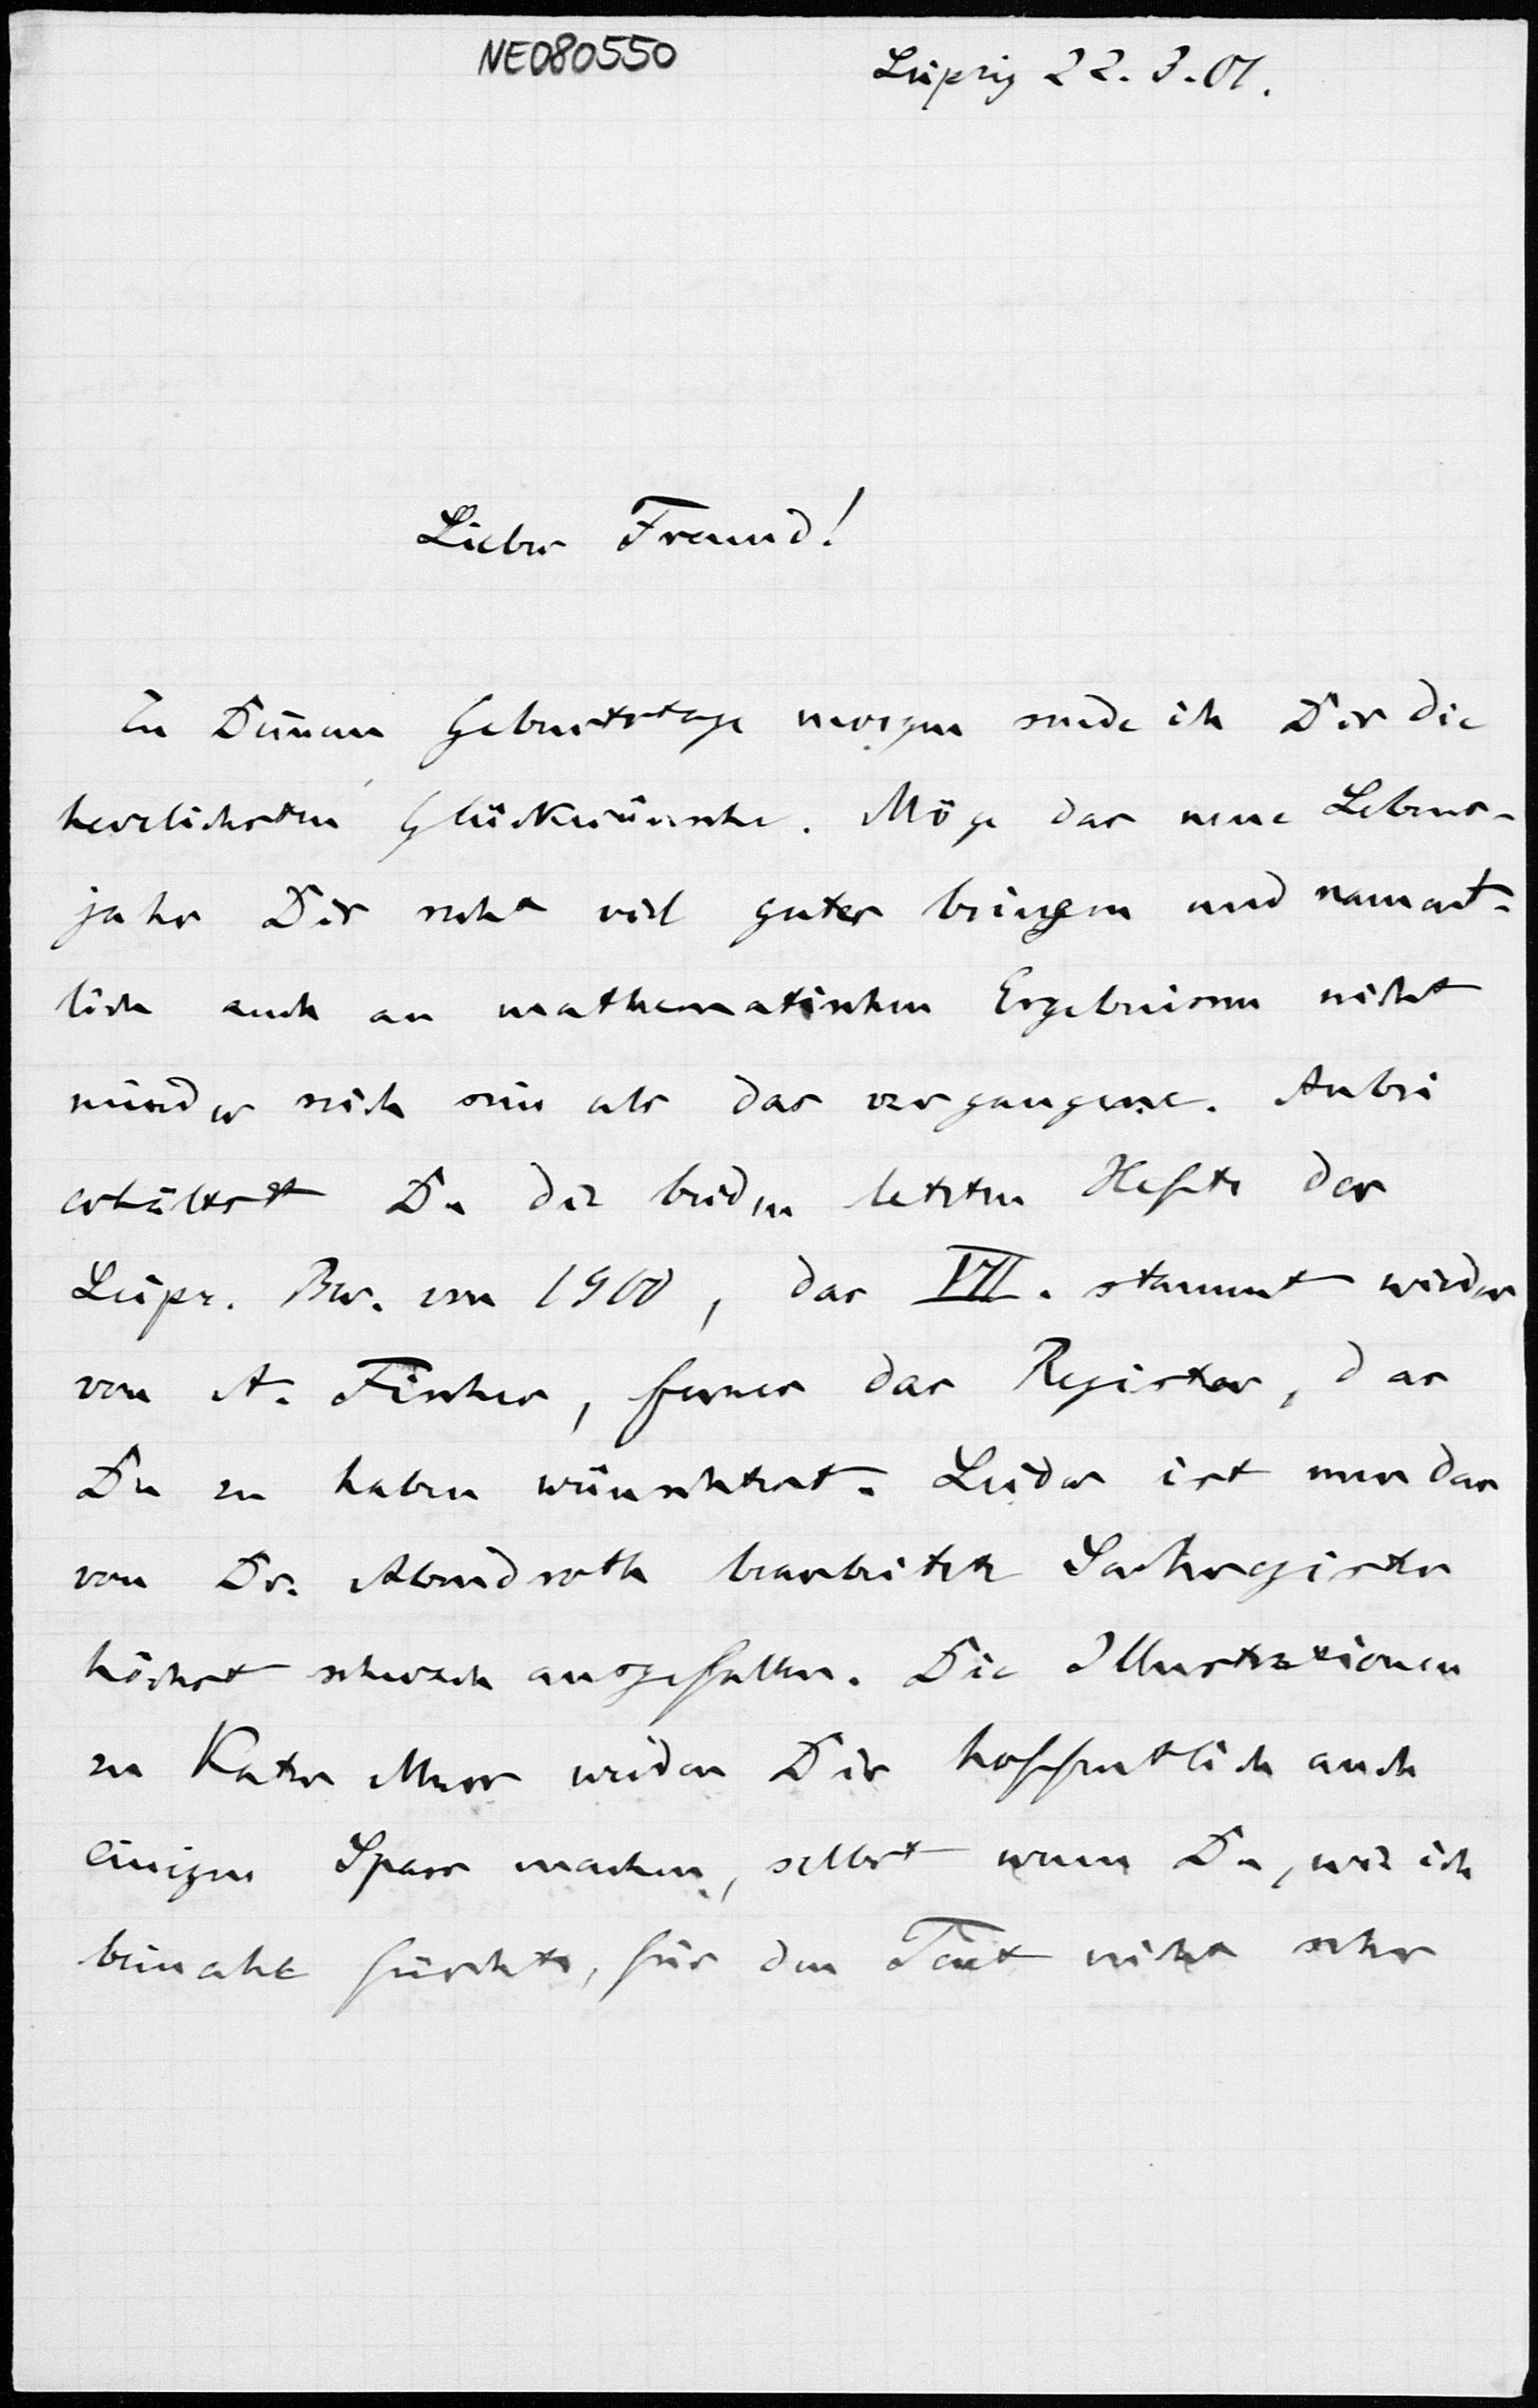 NE080550
Leipzig 22.3.01.
Lieber Freund!
Zu Deinem Geburtstage morgen sende ich Dir die
herzlichsten Glückwünsche. Möge das neue Lebens-
jahr Dir recht viel gutes bringen und nament-
lich auch an mathematischen Ergebnissen nicht
minder reich sein als das vergangene. Anbei
erhältst Du die beiden letzten Hefte der
Leipz. Ber. von 1900, das VII. stammt wieder
von A. Fischer, ferner das Register, das
Du zu haben wünschtest. Leider ist nur das
von Dr. Abendroth bearbeitete Sachregister
höchst schwach ausgefallen. Die Illustrationen
zu Kater Murr werden Dir hoffentlich auch
einigen Spass machen, selbst wenn Du, wie ich
beinahe fürchte, für den Text nicht sehr